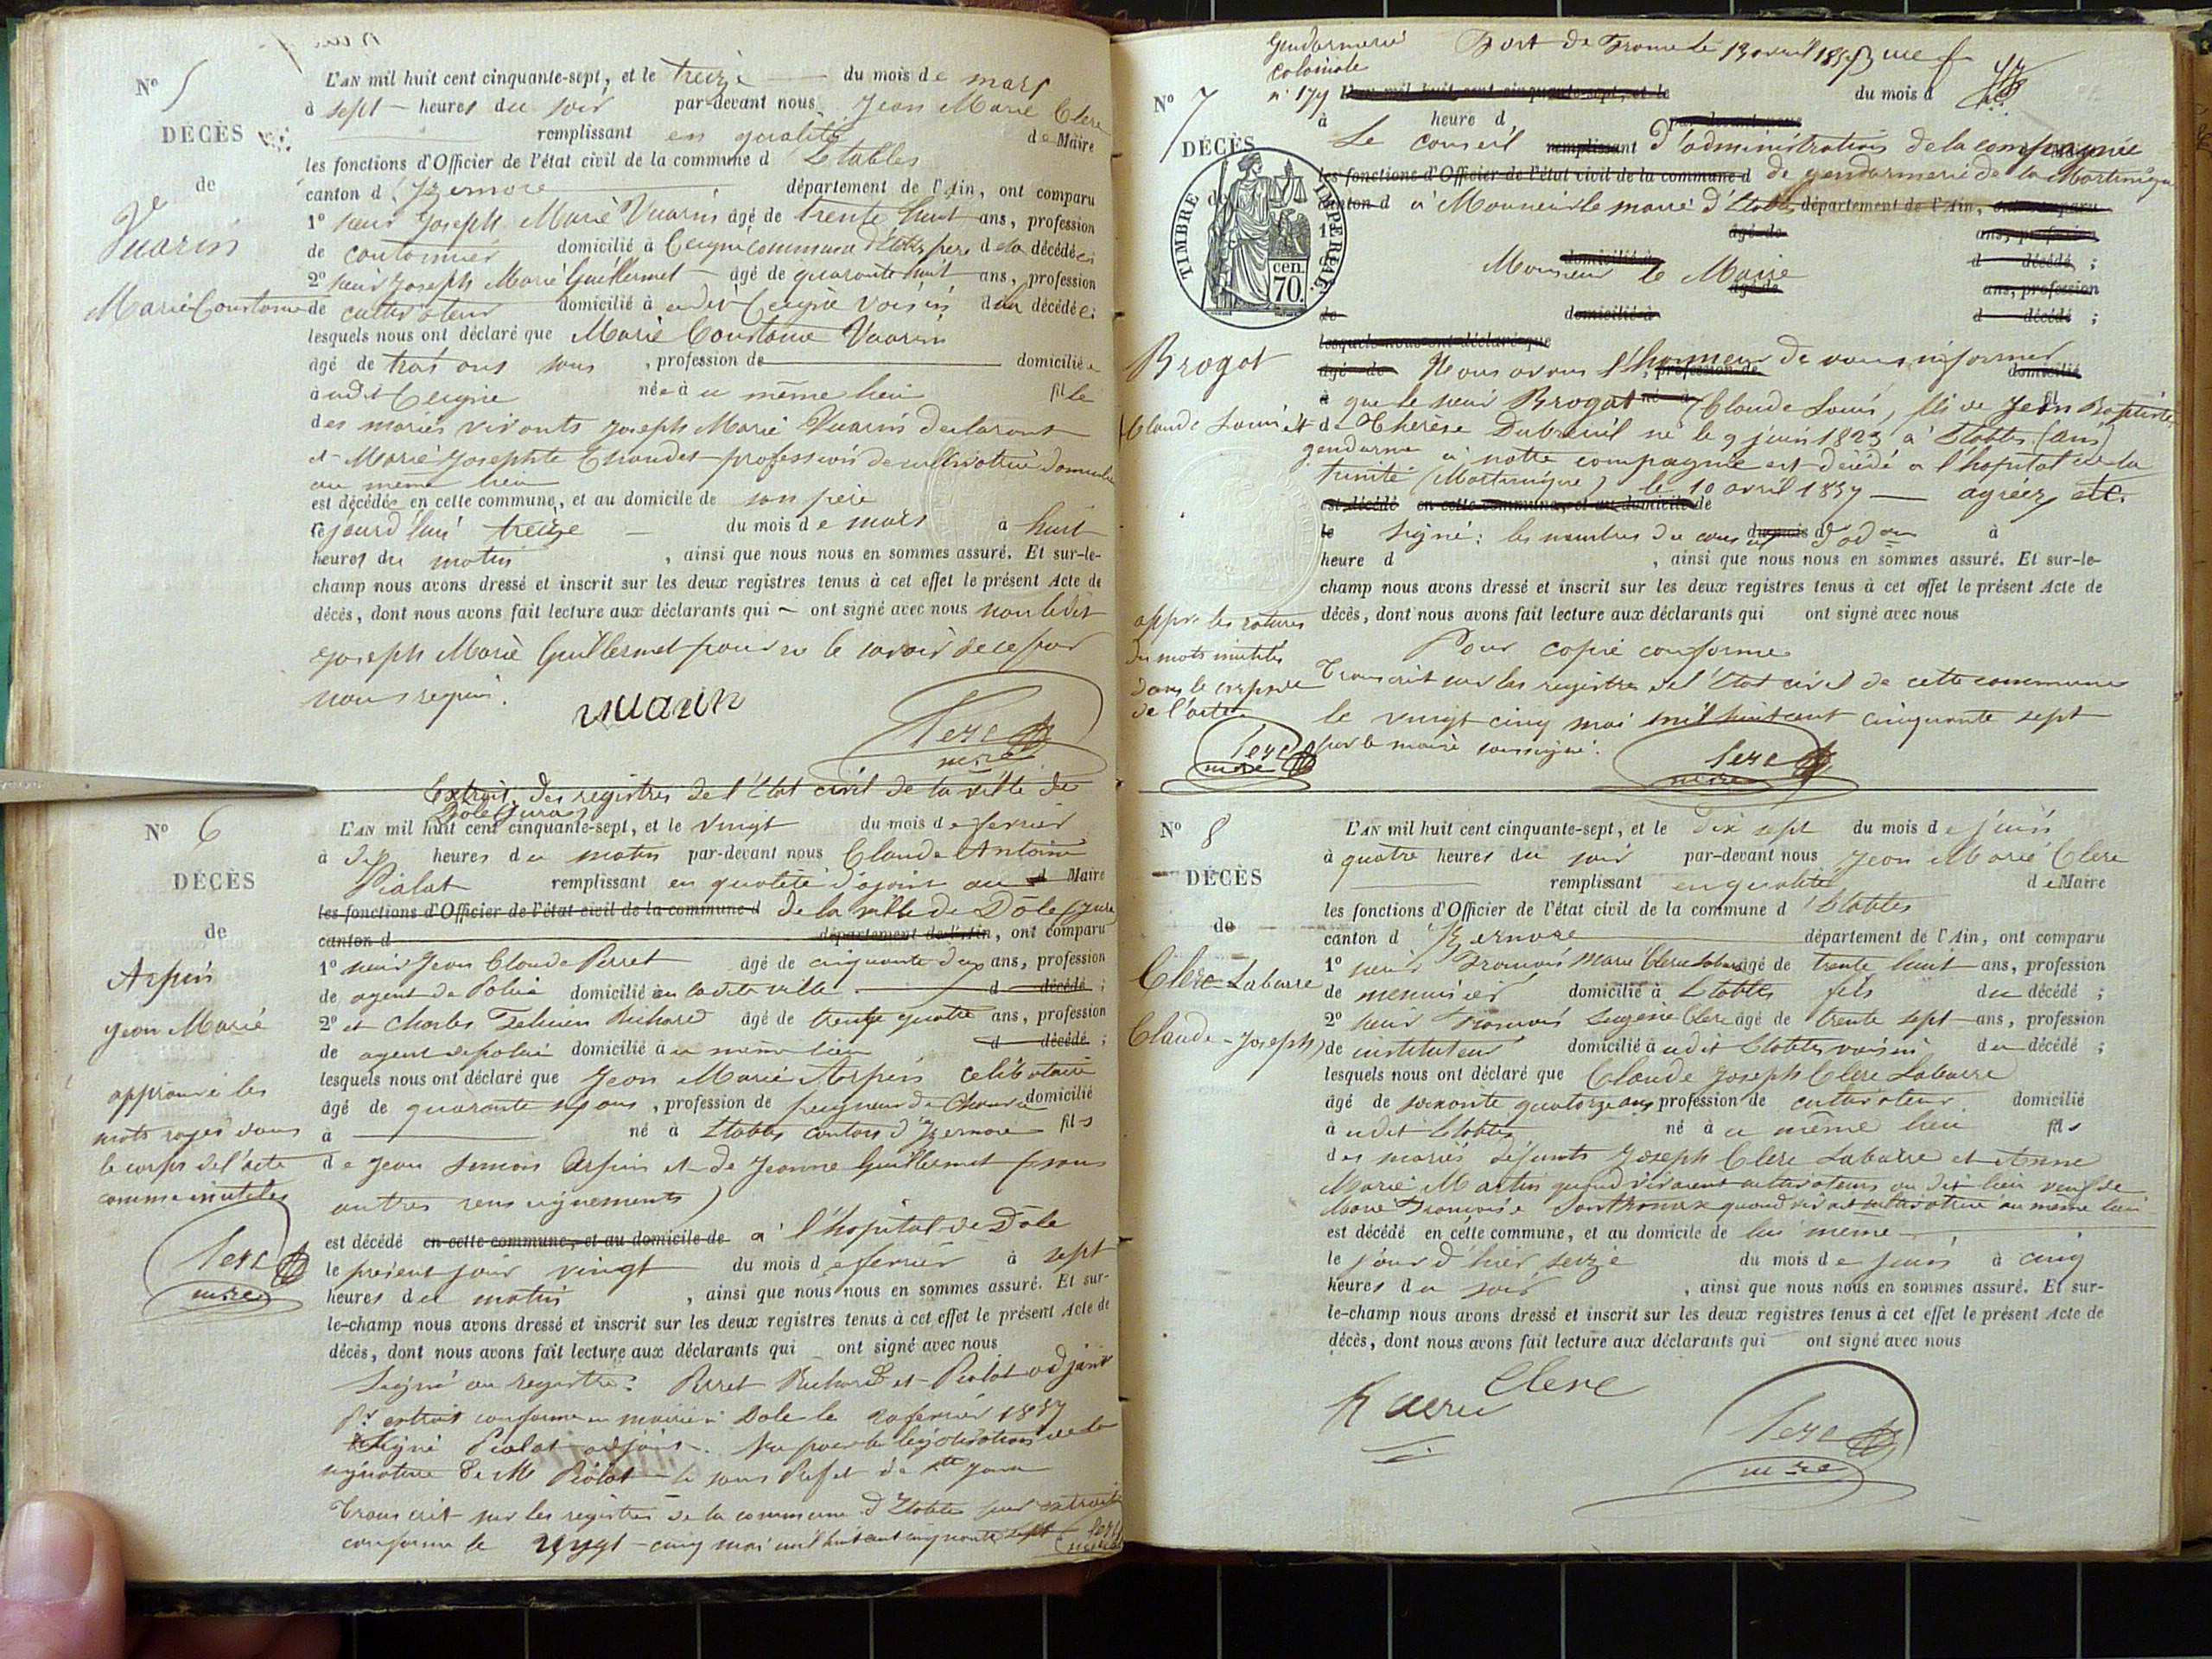 N° 5
DÉCÈS
de
Vuarin
Marie Constance
L'AN mil huit cent cinquante-sept, et le treize du mois de mars
à sept heures du soir par-devant nous Jean Marie Clerc
remplissant en qualité de Maire
les fonctions d'Officier de l'état civil de la commune d'Etables
canton d'Izernore département de l'Ain, ont comparu
1° sieur Joseph Marie Vuarin âgé de trente huit ans, profession
de cantonnier domicilié à Ceignes commune d'Etables père de la décédée;
2° sieur Joseph Marie Guillermet âgé de quarante huit ans, profession
de cultivateur domicilié à audit Ceigne voisin de la décédée;
lesquels nous ont déclaré que Marie Constance Vuarin
âgé de trois ans sans, profession de domiciliée
à udit Ceigne née à u même lieu fille
des mariés vivants Joseph Marie Vuarin déclarant
et Marie Josephte profession de cultivatrice
au même lieu
est décédée en cette commune, et au domicile de son père
cejourd'hui treize du mois de mars à huit
heures du matin, ainsi que nous nous en sommes assuré. Et sur-le-
champ nous avons dressé et inscrit sur les deux registres tenus à cet effet le présent Acte de
décès, dont nous avons fait lecture aux déclarants qui ont signé avec nous non ledit
Joseph Marie Guillermet pour ne le savoir de ce par
nous requis.
vuarin
Clerc
mre
Extrait des registres de l'Etat civil de la ville de
Dole (Jura)
N° 6
DÉCÈS
de
Arpin
Jean Marie
approuvé les
mots rayés dans
le corps de l'acte
comme inutiles
Clerc
mre
L'AN mil huit cent cinquante-sept, et le vingt du mois de fevrier
à dix heures du matin par-devant nous Claude Antoine
Pialat remplissant en qualité d'ajoint au d Maire
les fonctions d'Officier de l'état civil de la commune d de la ville de Dôle (Jura
canton d département de l'Ain, ont comparu
1° sieur Jean Claude Perret âgé de cinquante deux ans, profession
de agent de Police domicilié en ladite ville d décédé;
2° et Charles Richard âgé de trente quatre ans, profession
de agent de police domicilié à u même lieu d décédé;
lesquels nous ont déclaré que Jean Marie Arpin célibataire
âgé de quarante ans, profession de peigneur de Chanvre domicilié
à né à Etables canton d'Izernore fils
de Jean Simon Arpin et de Jeanne Guillermet (sans
autres renseignements)
est décédé en cette commune, et au domicile de à l'hopital de Dôle
le présent jour vingt du mois de fevrier à sept
heures du matin, ainsi que nous nous en sommes assuré. Et sur-
le-champ nous avons dressé et inscrit sur les deux registres tenus à cet effet le présent Acte de
décès, dont nous avons fait lecture aux déclarants qui ont signé avec nous
Signé au registre: Perret Richard et Pialat adjoint
Pr extrait conforme en mairie à Dole le 20 fevrier 1857
Signé Pialat adjoint. Vu pour la légalisation de la
signature de Mr Pialat le sous Prefet de
Transcrit sur les registres de la commune d'Etables sur extrait
conforme le vingt-cinq mai mil huit cent cinquante sept Clerc
Gendarmerie
Coloniale
n° 179
Fort de France le 13 avril 1857
N° 7
DÉCÈS
de
TIMBRE IMPERIAL
70 cen.
Brogat
Claude Louis
L'an mil huit cent cinquante-sept, et le du mois d
à heure d par-devant nous
Le conseil remplissant d'administration de la compagnie
les fonctions d'Officier de l'état civil de la commune d de gendarmerie de la Martinique
canton d à Monsieur le maire d'Etables département de l'Ain, ont comparu
1° âgé de ans, profession
domicilié à d décédé;
Monsieur le Maire
âgé de ans, profession
de domicilié à d décédé;
lesquels nous ont déclaré que
âgé de Nous avons l'honneur profession de de vous informer domicilié
à que le sieur Brogat né à Claude Louis, fils de Jean Baptiste
et de Thérèse Dubreuil né le 9 juin 1823 à Etables (ain)
gendarme à notre compagnie est décédé à l'hopital de la
trinité (Martinique) le 10 avril 1857 — agréez etc.
est décédé en cette commune, et au domicile de
le Signé: les membres du conseil du mois d à
heure d, ainsi que nous nous en sommes assuré. Et sur-le-
champ nous avons dressé et inscrit sur les deux registres tenus à cet effet le présent Acte de
décès, dont nous avons fait lecture aux déclarants qui ont signé avec nous
Pour copie conforme
Transcrit sur les registres de l'Etat civil de cette commune
le vingt cinq mai mil huit cent cinquante sept
par le maire soussigné.
Clerc
mre
appr. les ratures
des mots inutiles
dans le corps de
de l'acte.
Clerc
mre
N° 8
DÉCÈS
de
Clerc-Labarre
Claude-Joseph
L'AN mil huit cent cinquante-sept, et le dix sept du mois de juin
à quatre heures du soir par-devant nous Jean Marie Clerc
remplissant en qualité de Maire
les fonctions d'Officier de l'état civil de la commune d'Etables
canton d'Izernore département de l'Ain, ont comparu
1° sieur François Marie Clerc Labarre âgé de trente huit ans, profession
de menuisier domicilié à Etables fils du décédé;
2° sieur François Eugène Clerc âgé de trente sept ans, profession
de instituteur domicilié à udit Etables voisin du décédé;
lesquels nous ont déclaré que Claude Joseph Clerc Labarre
âgé de soixante quatorze ans profession de cultivateur domicilié
à udit Etables né à u même lieu fils
des mariés défunts Joseph Clerc Labarre et Anne
Marie Martin quand vivaient cultivateurs au dit lieu veuf de
Marie Françoise Sonthonnax quand vivait cultivatrice au même lieu
est décédé en cette commune, et au domicile de lui même
le jour d'hier seize du mois de juin à cinq
heures du soir, ainsi que nous nous en sommes assuré. Et sur-
le-champ nous avons dressé et inscrit sur les deux registres tenus à cet effet le présent Acte de
décès, dont nous avons fait lecture aux déclarants qui ont signé avec nous
Clerc
Clerc
mre